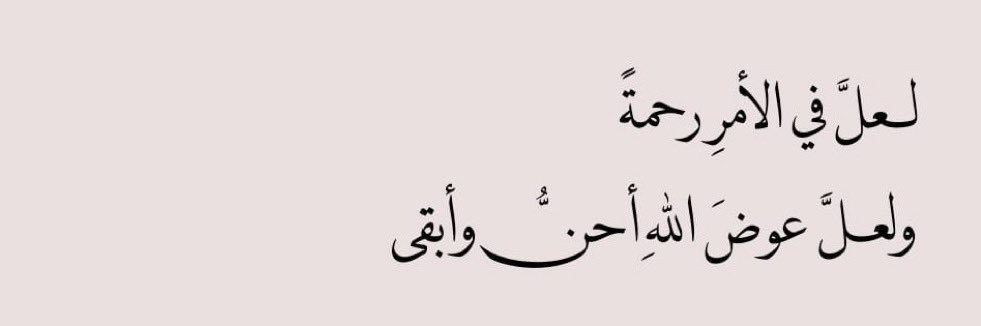 لـعلَّ في الأمرِ رحمةً
ولعـلَّ عوضَ اللهِ أحنُّ وأبقى